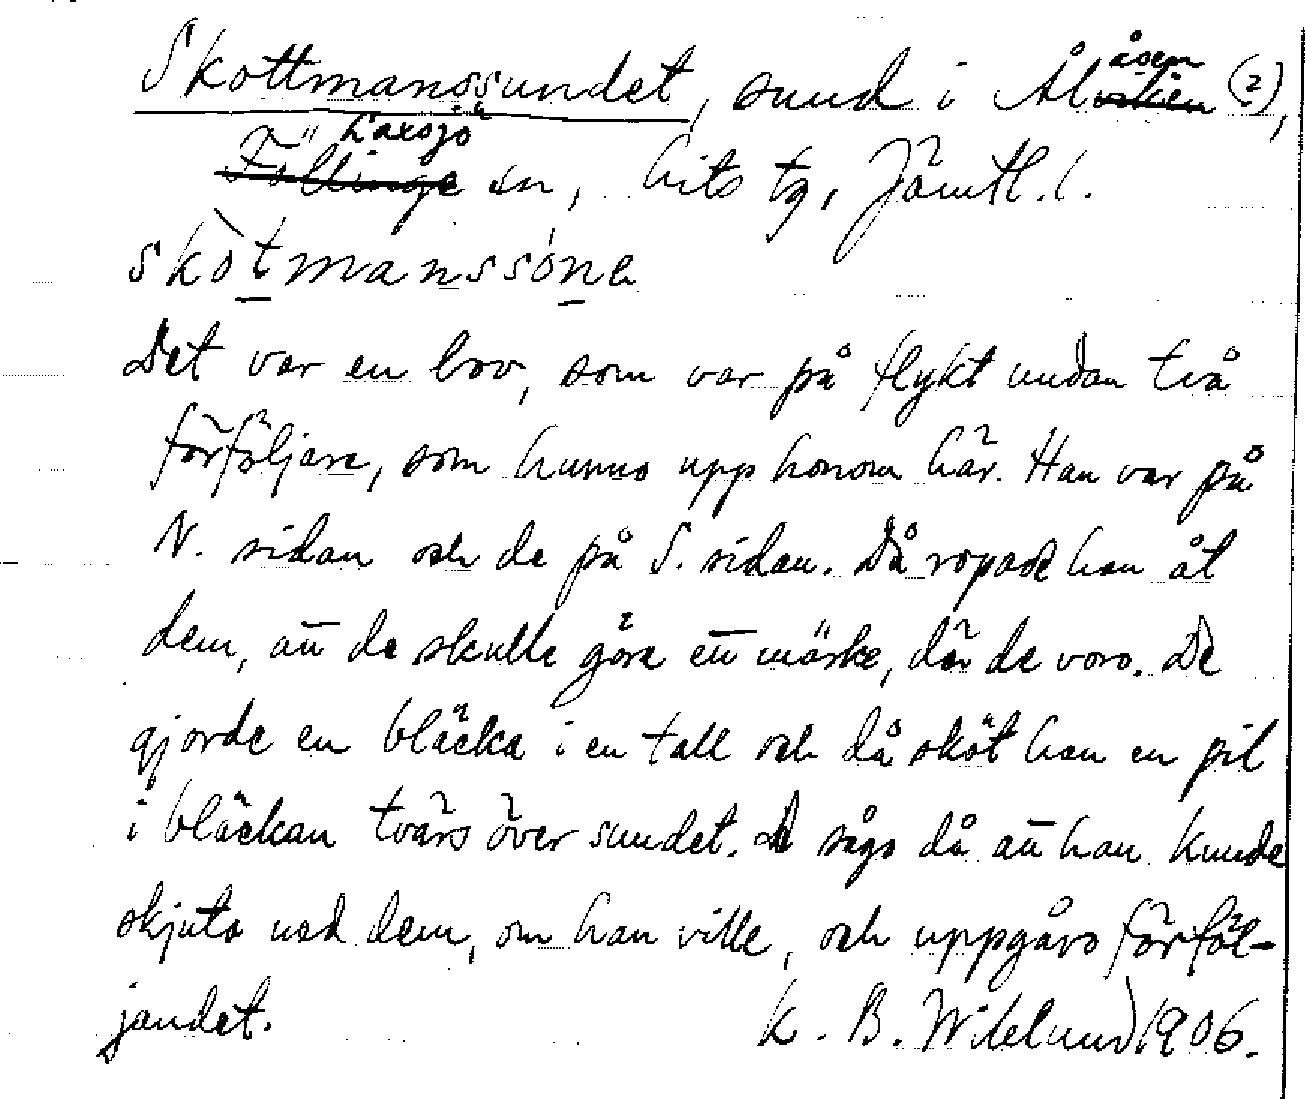 Skottmanssundet, sund i Ålåsen (?),
Laxsjö sn, Lits tg, Jämtl. l.
skòtmanssóna
Det var en bov, som var på flykt undan två
förföljare, som hunno upp honom här. Han var på
N. sidan och de på S. sidan. Då ropade han åt
dem, att de skulle göra ett märke, där de voro. De
gjorde en bläcka i en tall och då sköt han en pil
i bläckan tvärs över sundet. De sågo då att han kunde
skjuta ned dem, om han ville, och uppgåvo förföl-
jandet. K. B. Wiklund 1906.